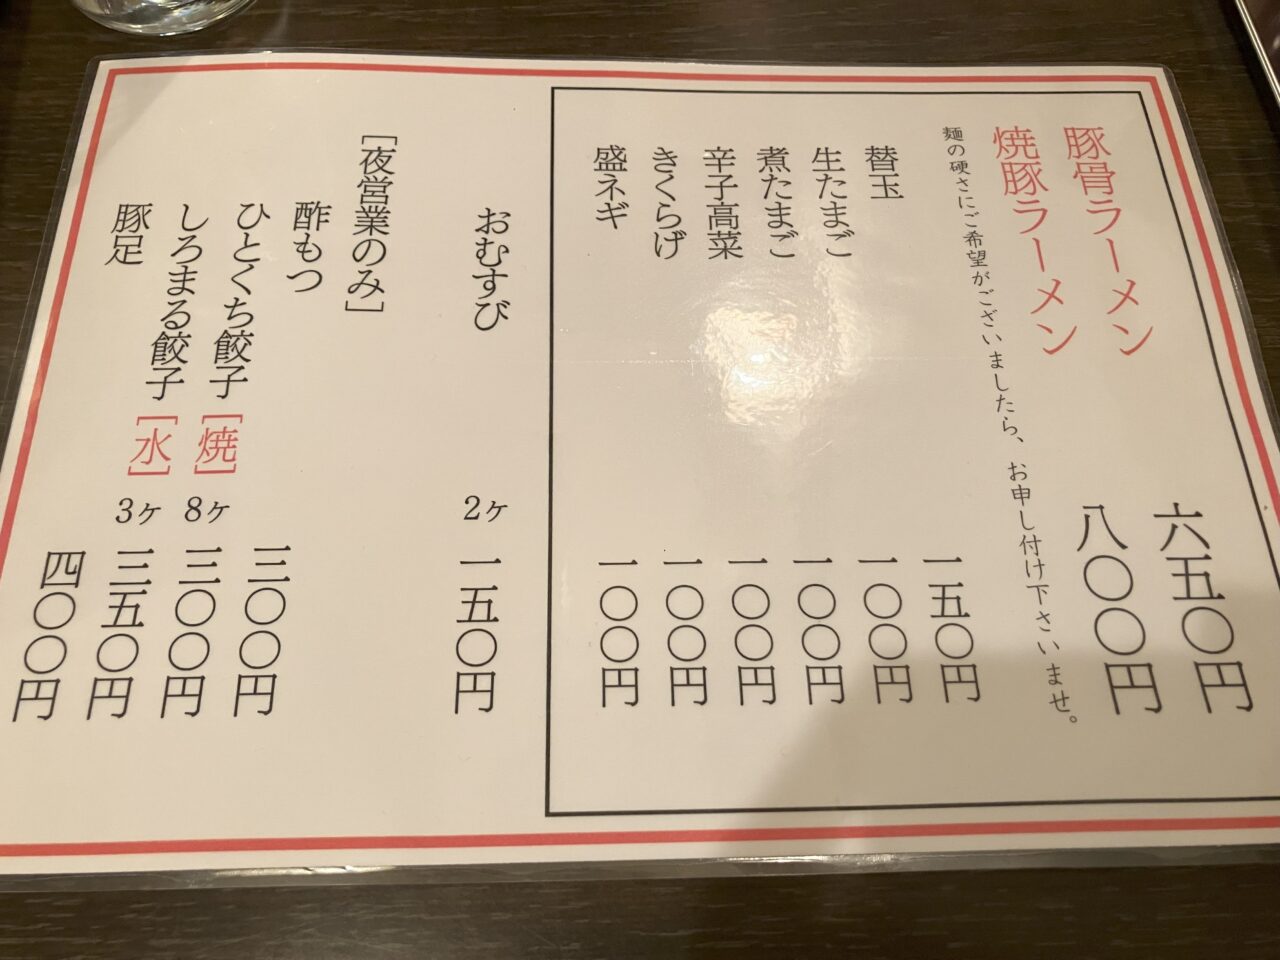 豚骨ラーメン 六五〇円
焼豚ラーメン 八〇〇円
麺の硬さにご希望がございましたら、お申し付け下さいませ。
替玉 一五〇円
生たまご 一〇〇円
煮たまご 一〇〇円
辛子高菜 一〇〇円
きくらげ 一〇〇円
盛ネギ 一〇〇円
おむすび 2ヶ 一五〇円
［夜営業のみ］
酢もつ 三〇〇円
ひとくち餃子［焼］ 8ヶ 三〇〇円
しろまる餃子［水］ 3ヶ 三五〇円
豚足 四〇〇円